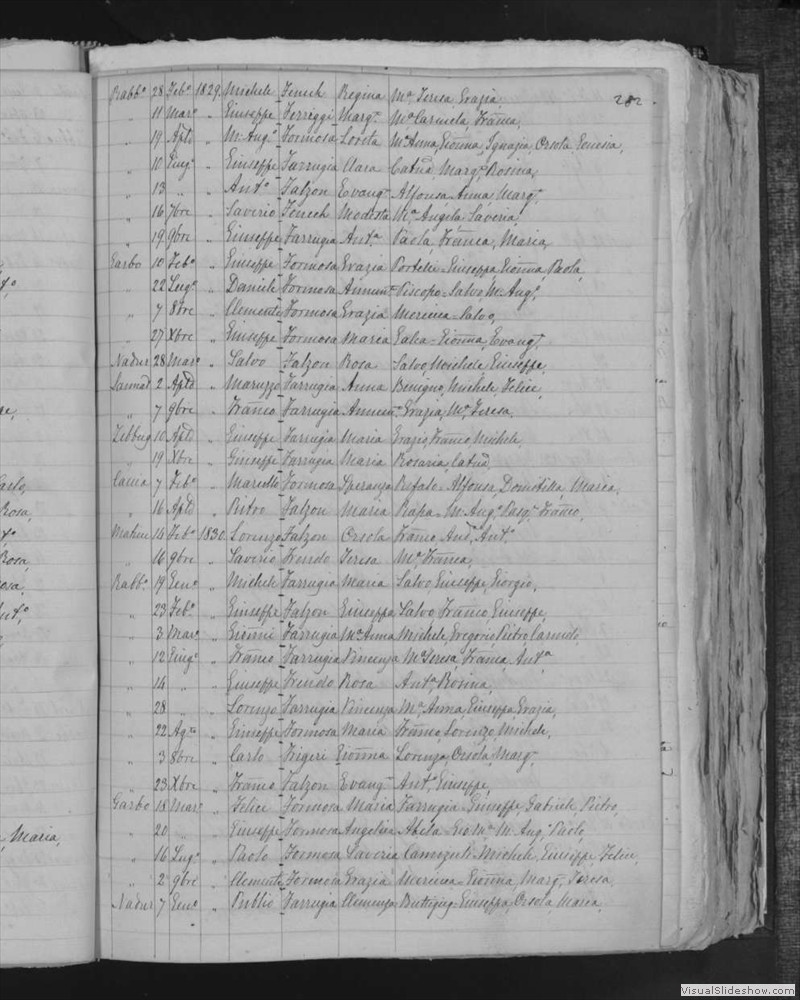 282
Rabbo 28 Febo 1829 Michele Fenech Regina Ma Teresa, Grazia,
" 11 Maro " Giuseppe Ferriggi Marga Ma Carmela, Franca,
" 19 Aple " M. Ango Formosa Loreta Ma Anna, Gionna, Ignazia, Orsola,
" 10 Giugo " Giuseppe Farrugia Clara Catna Marga Rosina,
" 13 " " Anto Falzon Evanga Alfonsa, Anna, Marga
" 16 7bre " Saverio Fenech Modesta Ma Angela, Saveria,
" 19 9bre " Giuseppe Farrugia Anta Paola, Franca, Maria,
Garbo 10 Febo " Giuseppe Formosa Grazia Portelli Giuseppa, Gionna, Paola,
" 22 Lugo " Daniele Formosa Annunta Piscopo Salvo, M. Ango
" 7 8bre " Clemente Formosa Grazia Mercieca Salvo,
" 27 Xbre " Giuseppe Formosa Maria Galea Gionna, Evanga
Nadur 28 Maro " Salvo Falzon Rosa Salvo, Michele, Giuseppe,
Sannat 2 Aple " Maruzzo Farrugia Anna Benigno, Michele, Felice,
" 7 9bre " Franco Farrugia Annunta Grazia, Ma Teresa,
Zebbug 10 Aple " Giuseppe Farrugia Maria Grazio, Franco, Michele,
" 19 Xbre " Giuseppe Farrugia Maria Rosaria, Catna
Caccia 7 Febo " Marcello Formosa Speranza Refalo Alfonsa, Domitilla, Maria,
" 16 Aple " Pietro Falzon Maria Rapa M. Ango Pasqe Franco,
14 Febo 1830 Lorenzo Falzon Orsola Franco Anto Anto
" 16 9bre " Saverio Frendo Teresa Ma Franca,
Rabbo 19 Geno " Michele Farrugia Maria Salvo, Giuseppe, Giorgio,
" 23 Febo " Giuseppe Falzon Giuseppa Salvo, Franco, Giuseppe,
" 3 Maro " Gionni Farrugia Ma Anna Michele, Gregorio, Pietro, Carmelo,
" 12 Giugo " Franco Farrugia Vincenza Ma Teresa, Franca, Anta
" 14 " " Giuseppe Frendo Rosa Anta Rosina,
" 28 " " Lorenzo Farrugia Vincenza Ma Anna, Giuseppa, Grazia,
" 22 Agto " Giuseppe Formosa Maria Franco, Lorenzo, Michele,
" 3 8bre " Carlo Frigeri Gionna Lorenza, Orsola, Marga
" 23 Xbre " Franco Falzon Evanga Anto Giuseppe,
Garbo 18 Maro " Felice Formosa Maria Farrugia Giuseppe, Gabriele, Pietro,
" 20 " " Giuseppe Formosa Angelica Abela Gio Ma M. Ango Paolo,
" 16 Lugo " Paolo Formosa Saveria Camizuli Michele, Giuseppe, Felice,
" 2 9bre " Clemente Formosa Grazia Mercieca Gionna, Marga Teresa,
Nadur 7 Geno " Publio Farrugia Clemenza Buttigieg Giuseppa, Orsola, Maria,
Carlo,
Rosa,
Rosa,
Maria,
VisualSlideshow.com